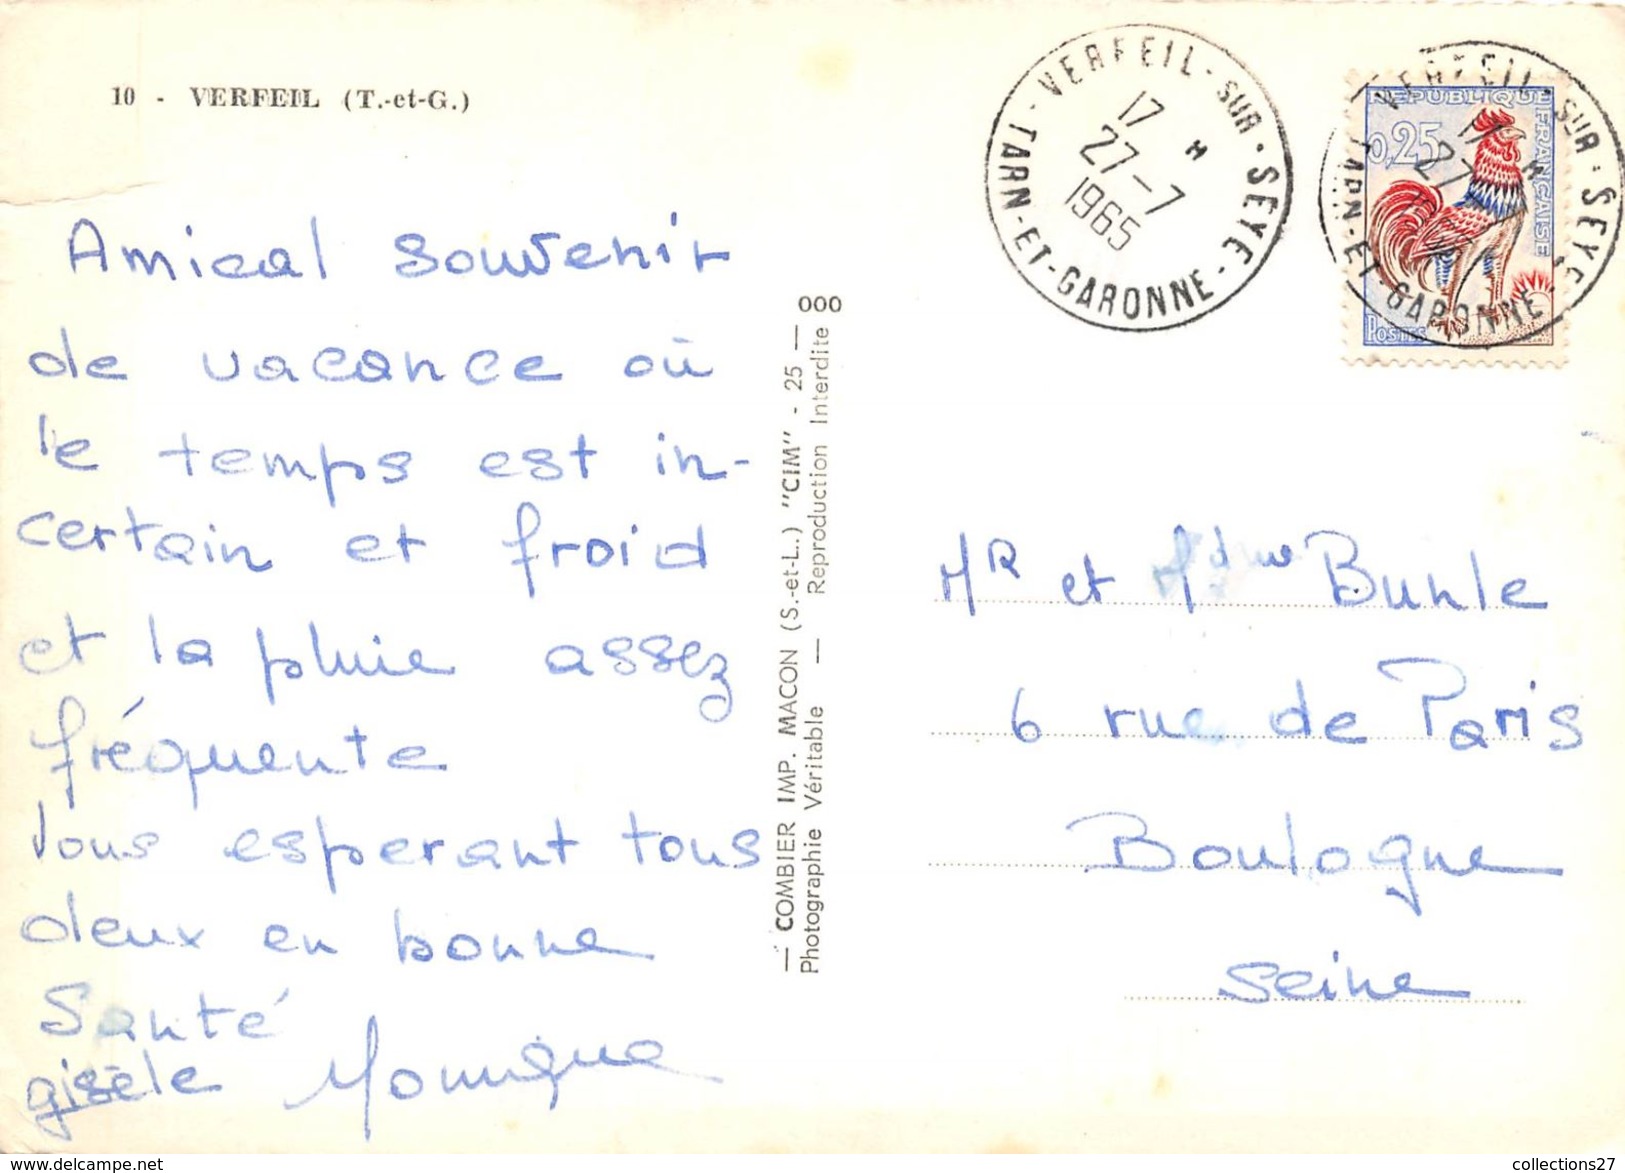 10 - VERFEIL (T.-et-G.)
Amical souvenir
de vacance où
le temps est in-
certain et froid
et la pluie assez
fréquente
Vous esperant tous
deux en bonne
Santé
gisèle Monique
— COMBIER IMP. MACON (S.-et-L.) "CIM" - 25 — 000
Photographie Véritable — Reproduction Interdite
VERFEIL-SUR-SEYE
17 H
27-7
1965
TARN-ET-GARONNE
VERFEIL-SUR-SEYE
17 H
27
TARN-ET-GARONNE
REPUBLIQUE FRANÇAISE
0,25
POSTES
MR et Mdme Buhle
6 rue de Paris
Boulogne
Seine
collections27